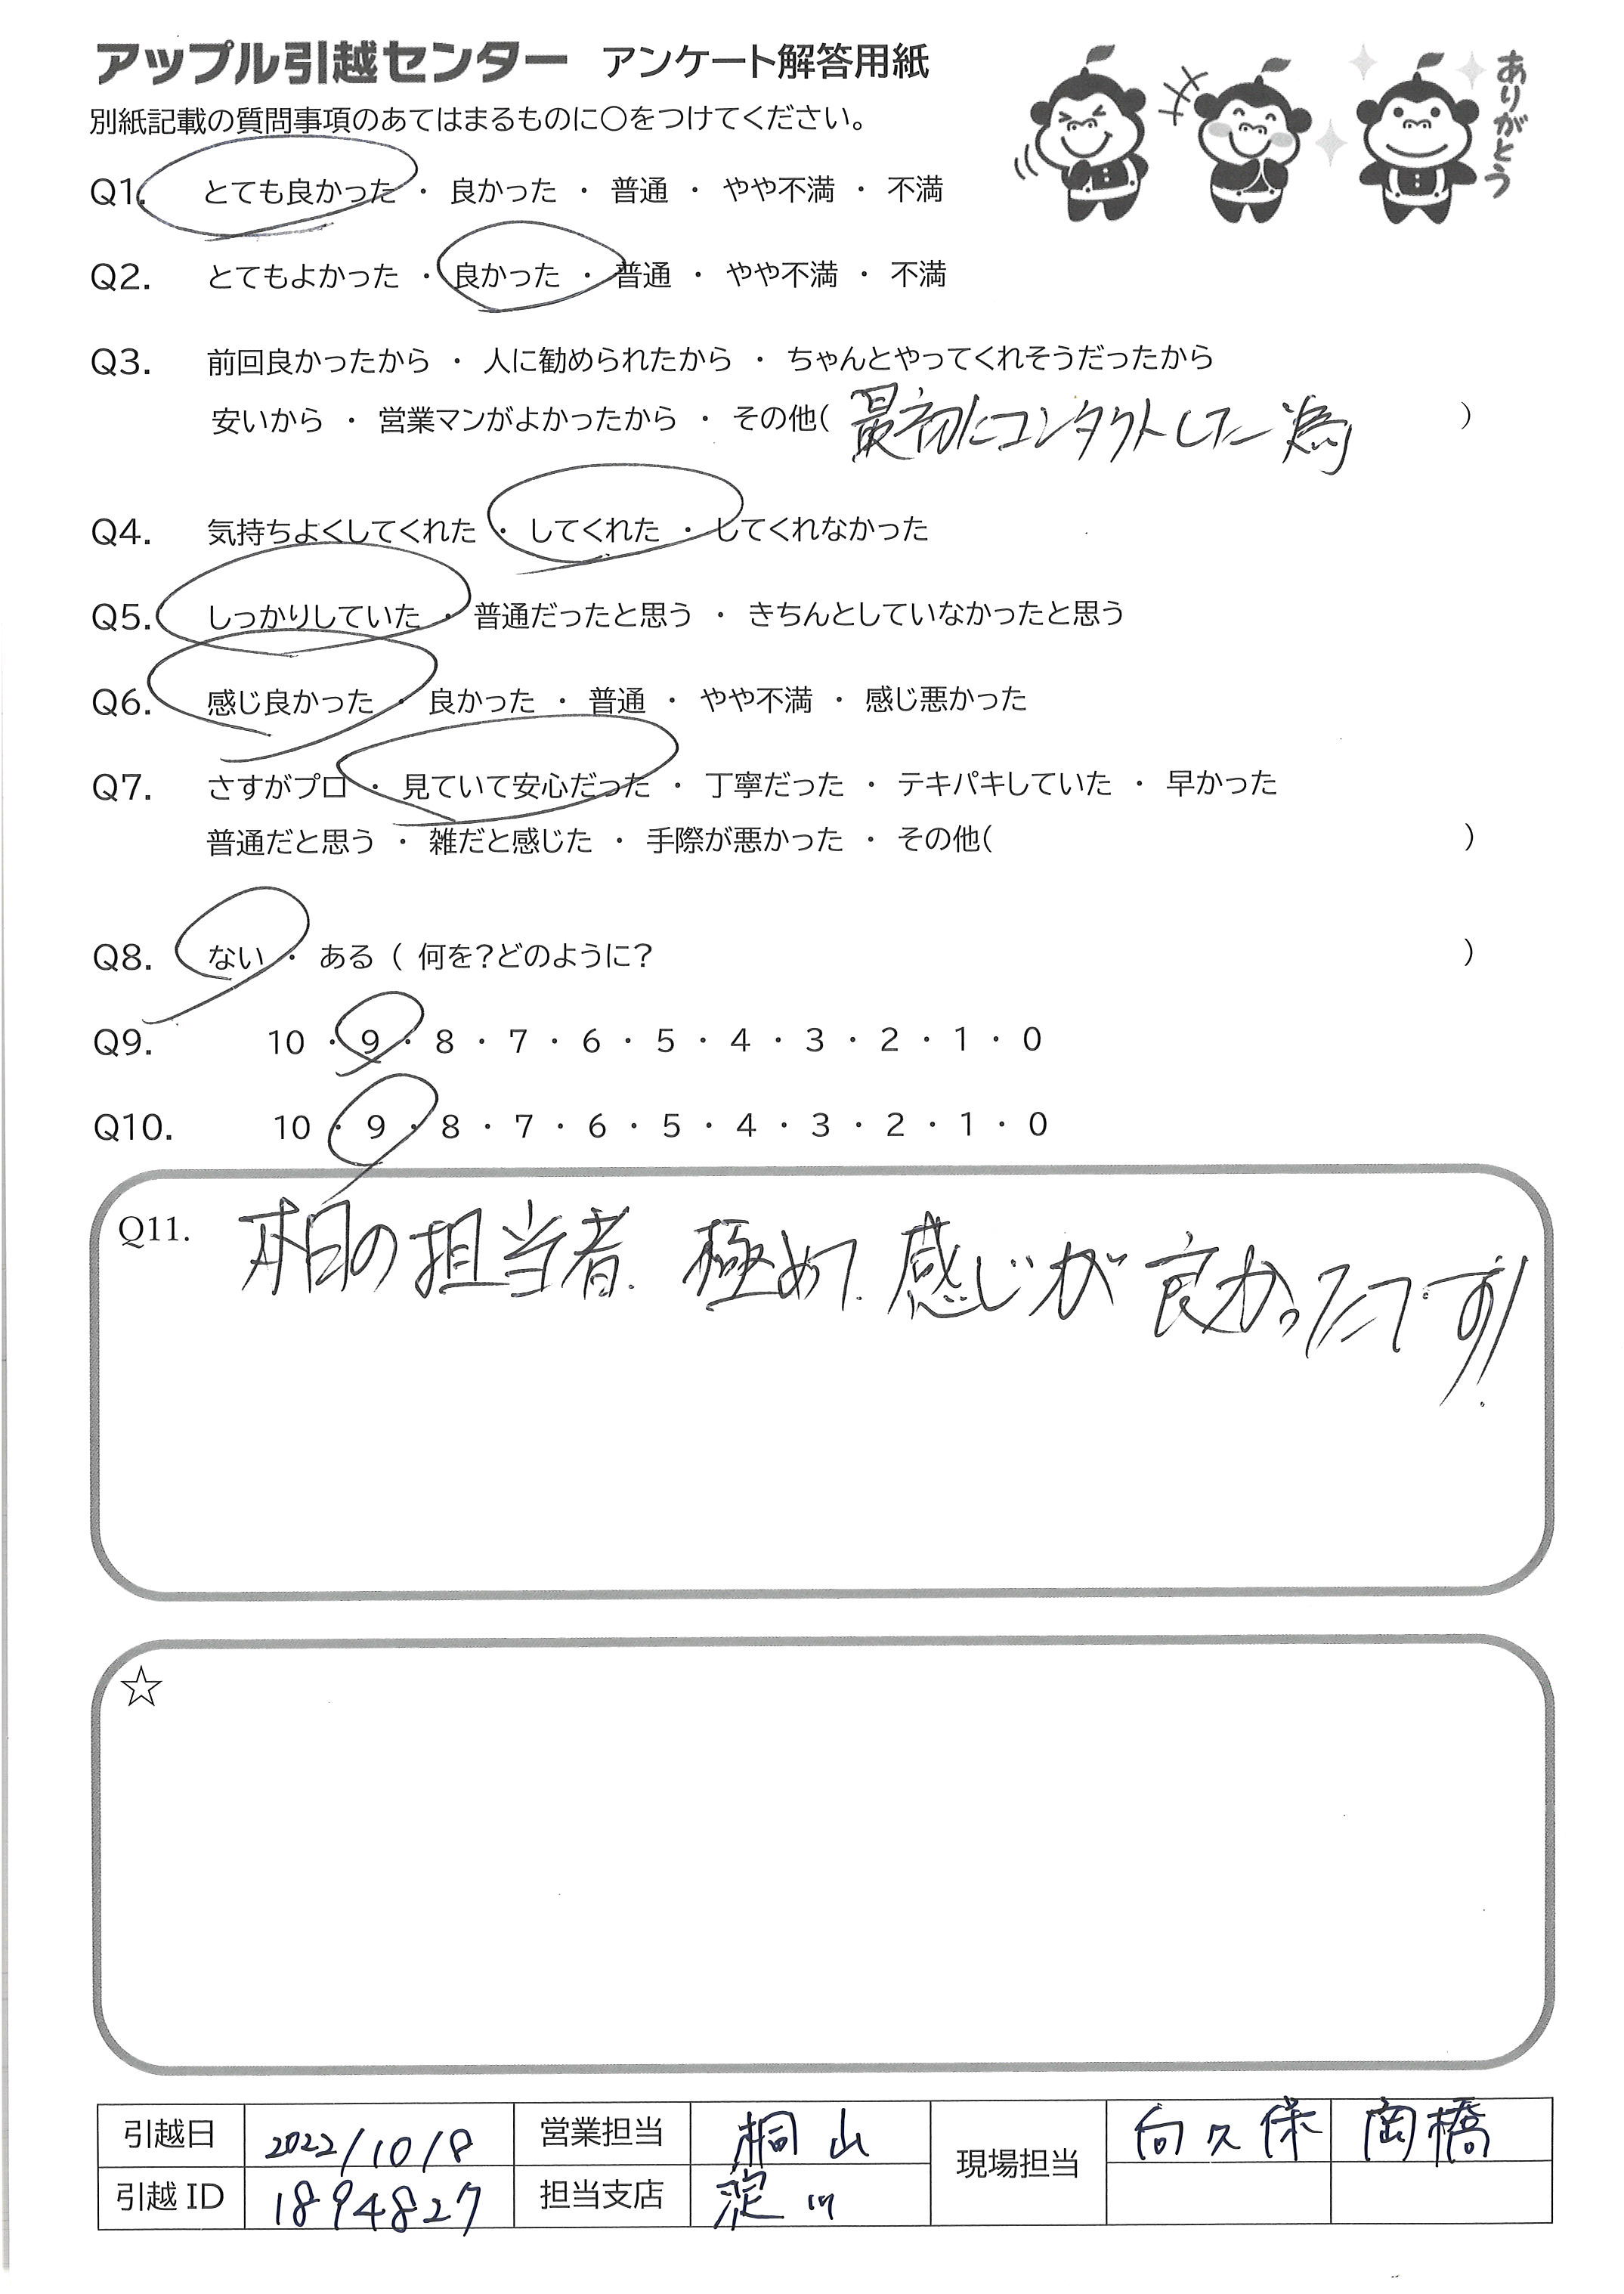 アップル引越センター アンケート解答用紙
別紙記載の質問事項のあてはまるものに○をつけてください。
ありがとう
Q1. とても良かった ・ 良かった ・ 普通 ・ やや不満 ・ 不満
Q2. とてもよかった ・ 良かった ・ 普通 ・ やや不満 ・ 不満
Q3. 前回良かったから ・ 人に勧められたから ・ ちゃんとやってくれそうだったから
安いから ・ 営業マンがよかったから ・ その他( 最初にコンタクトした為 )
Q4. 気持ちよくしてくれた ・ してくれた ・ してくれなかった
Q5. しっかりしていた ・ 普通だったと思う ・ きちんとしていなかったと思う
Q6. 感じ良かった ・ 良かった ・ 普通 ・ やや不満 ・ 感じ悪かった
Q7. さすがプロ ・ 見ていて安心だった ・ 丁寧だった ・ テキパキしていた ・ 早かった
普通だと思う ・ 雑だと感じた ・ 手際が悪かった ・ その他( )
Q8. ない ・ ある ( 何を?どのように? )
Q9. 10 ・ 9 ・ 8 ・ 7 ・ 6 ・ 5 ・ 4 ・ 3 ・ 2 ・ 1 ・ 0
Q10. 10 ・ 9 ・ 8 ・ 7 ・ 6 ・ 5 ・ 4 ・ 3 ・ 2 ・ 1 ・ 0
Q11. 本日の担当者、極めて、感じが良かったです!
☆
引越日 2022/10/8 営業担当 桐山 現場担当 向久保 岡橋
引越ID 1894827 担当支店 淀川